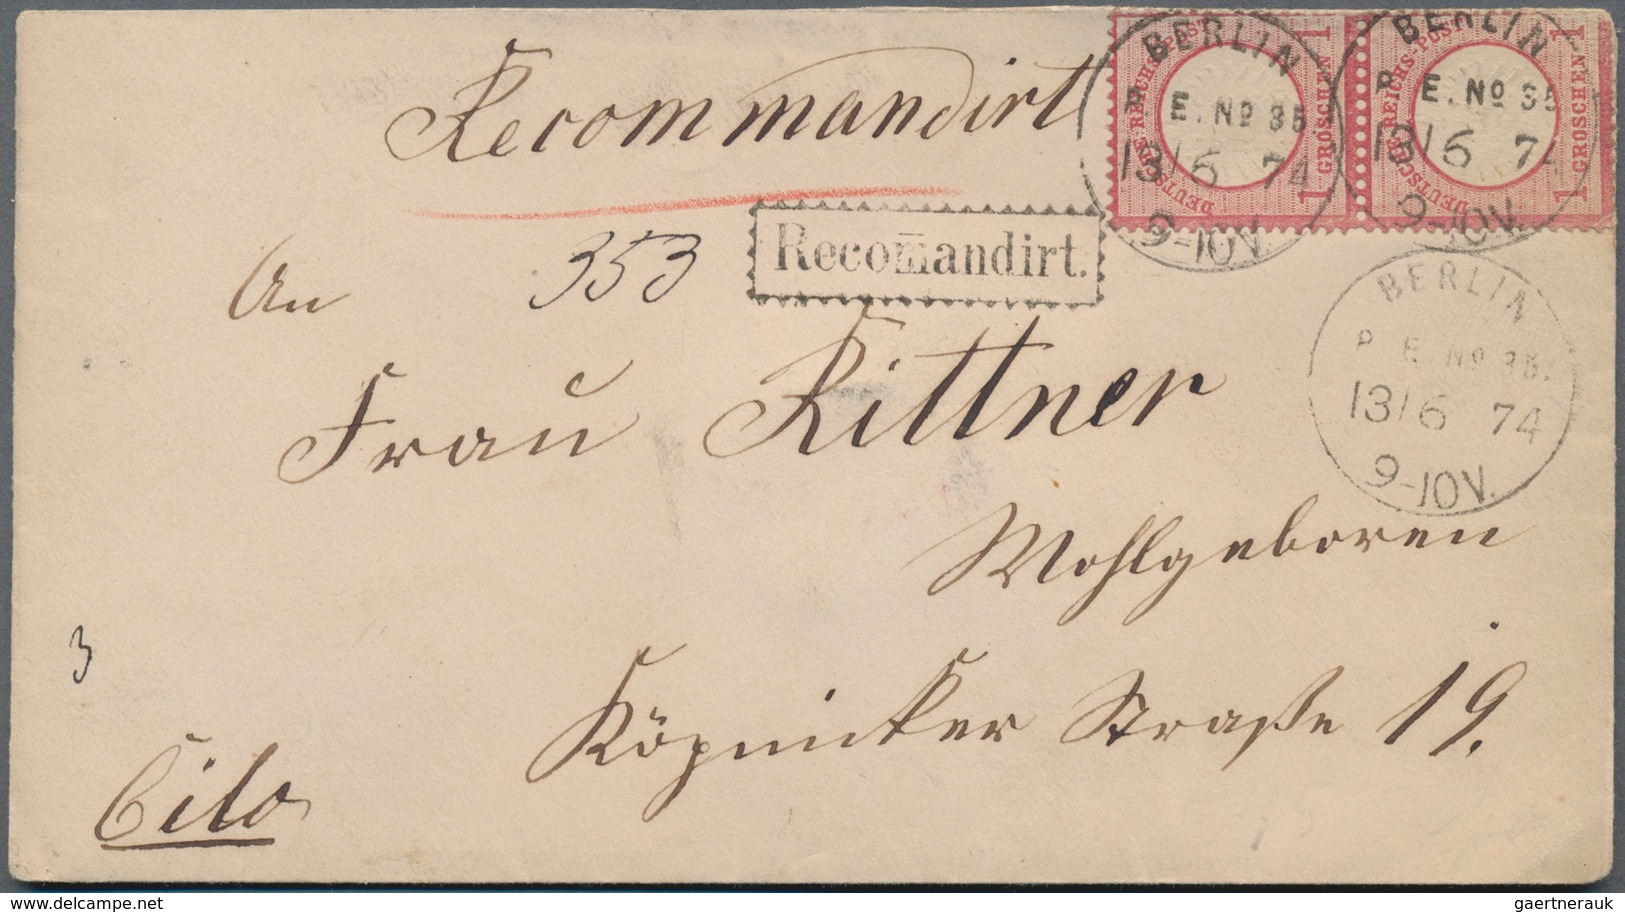 Recommandirt
BERLIN
P. E. No 35.
13/6 74
9-10V.
DEUTSCHE REICHS-POST
1 GROSCHEN 1
BERLIN
P. E. No 35
13/6 74
9-10V.
DEUTSCHE REICHS-POST
1 GROSCHEN 1
An 353
Recom̅andirt.
BERLIN
P. E. No 35.
13/6 74
9-10V.
Frau Rittner
Wohlgeboren
3
Köpnicker Straße 19.
Cito
gaertnerauk